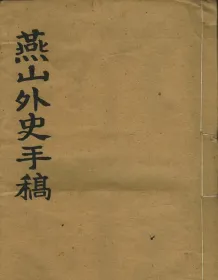 燕山外史手稿